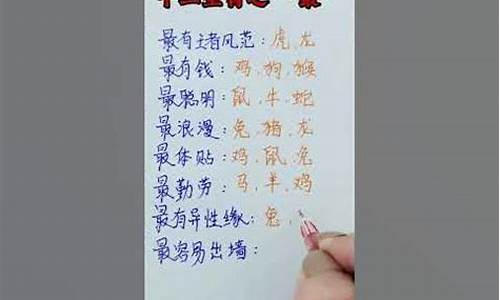 十二生肖之 最
最有王者风范：虎、龙
最有钱：鸡、狗、猴
最聪明：鼠、牛、蛇
最浪漫：兔、猪、龙
最体贴：鸡、鼠、兔
最勤劳：马、羊、鸡
最有异性缘：兔、
最容易出墙：